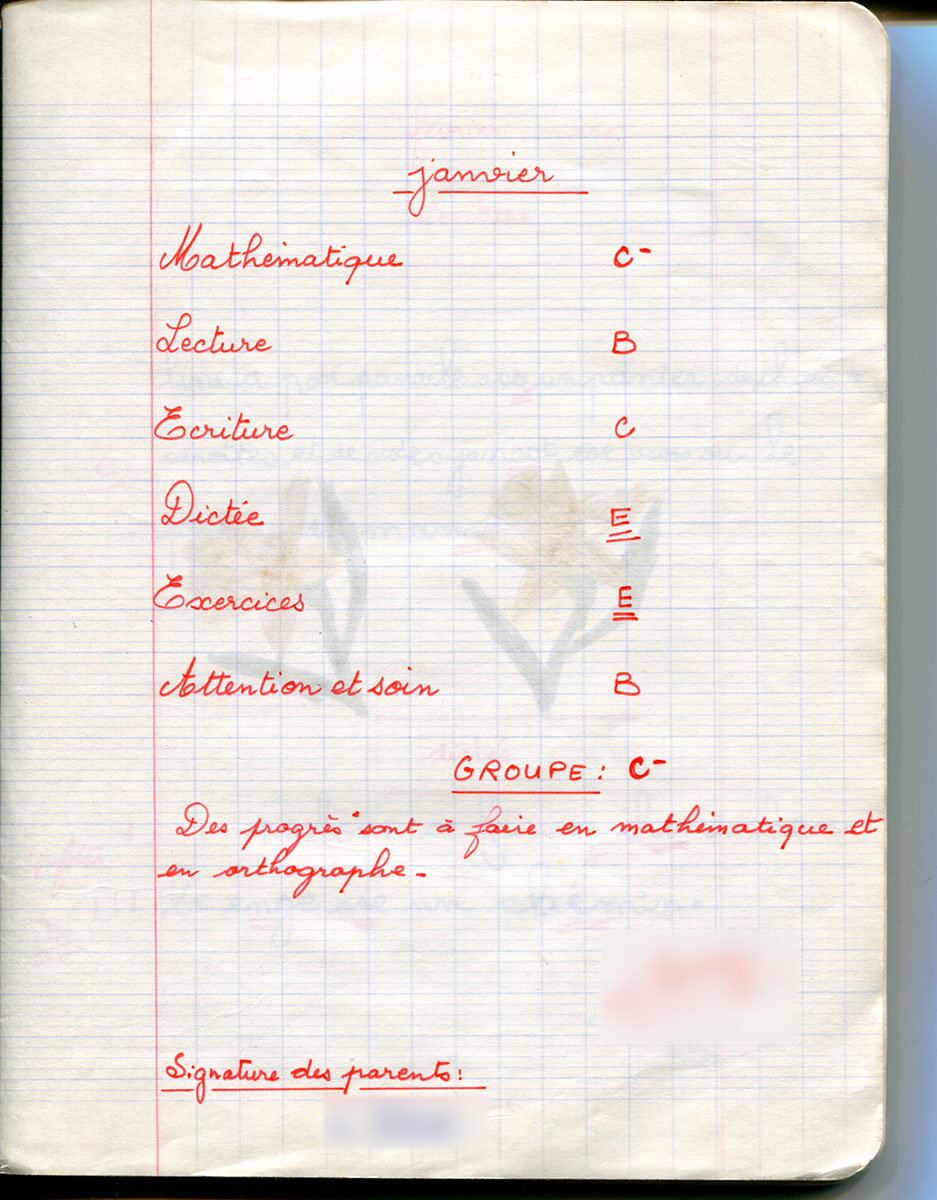 janvier
Mathématique C-
Lecture B
Ecriture C
Dictée E
Exercices E
Attention et soin B
GROUPE : C-
Des progrès sont à faire en mathématique et
en orthographe.
Signature des parents :